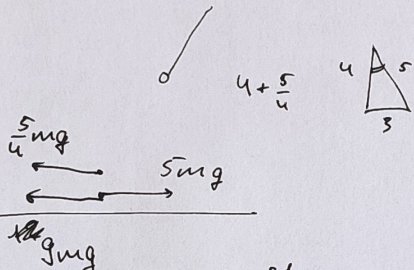 4 + 5/4
4 5
3
5/4 mg
5mg
9mg